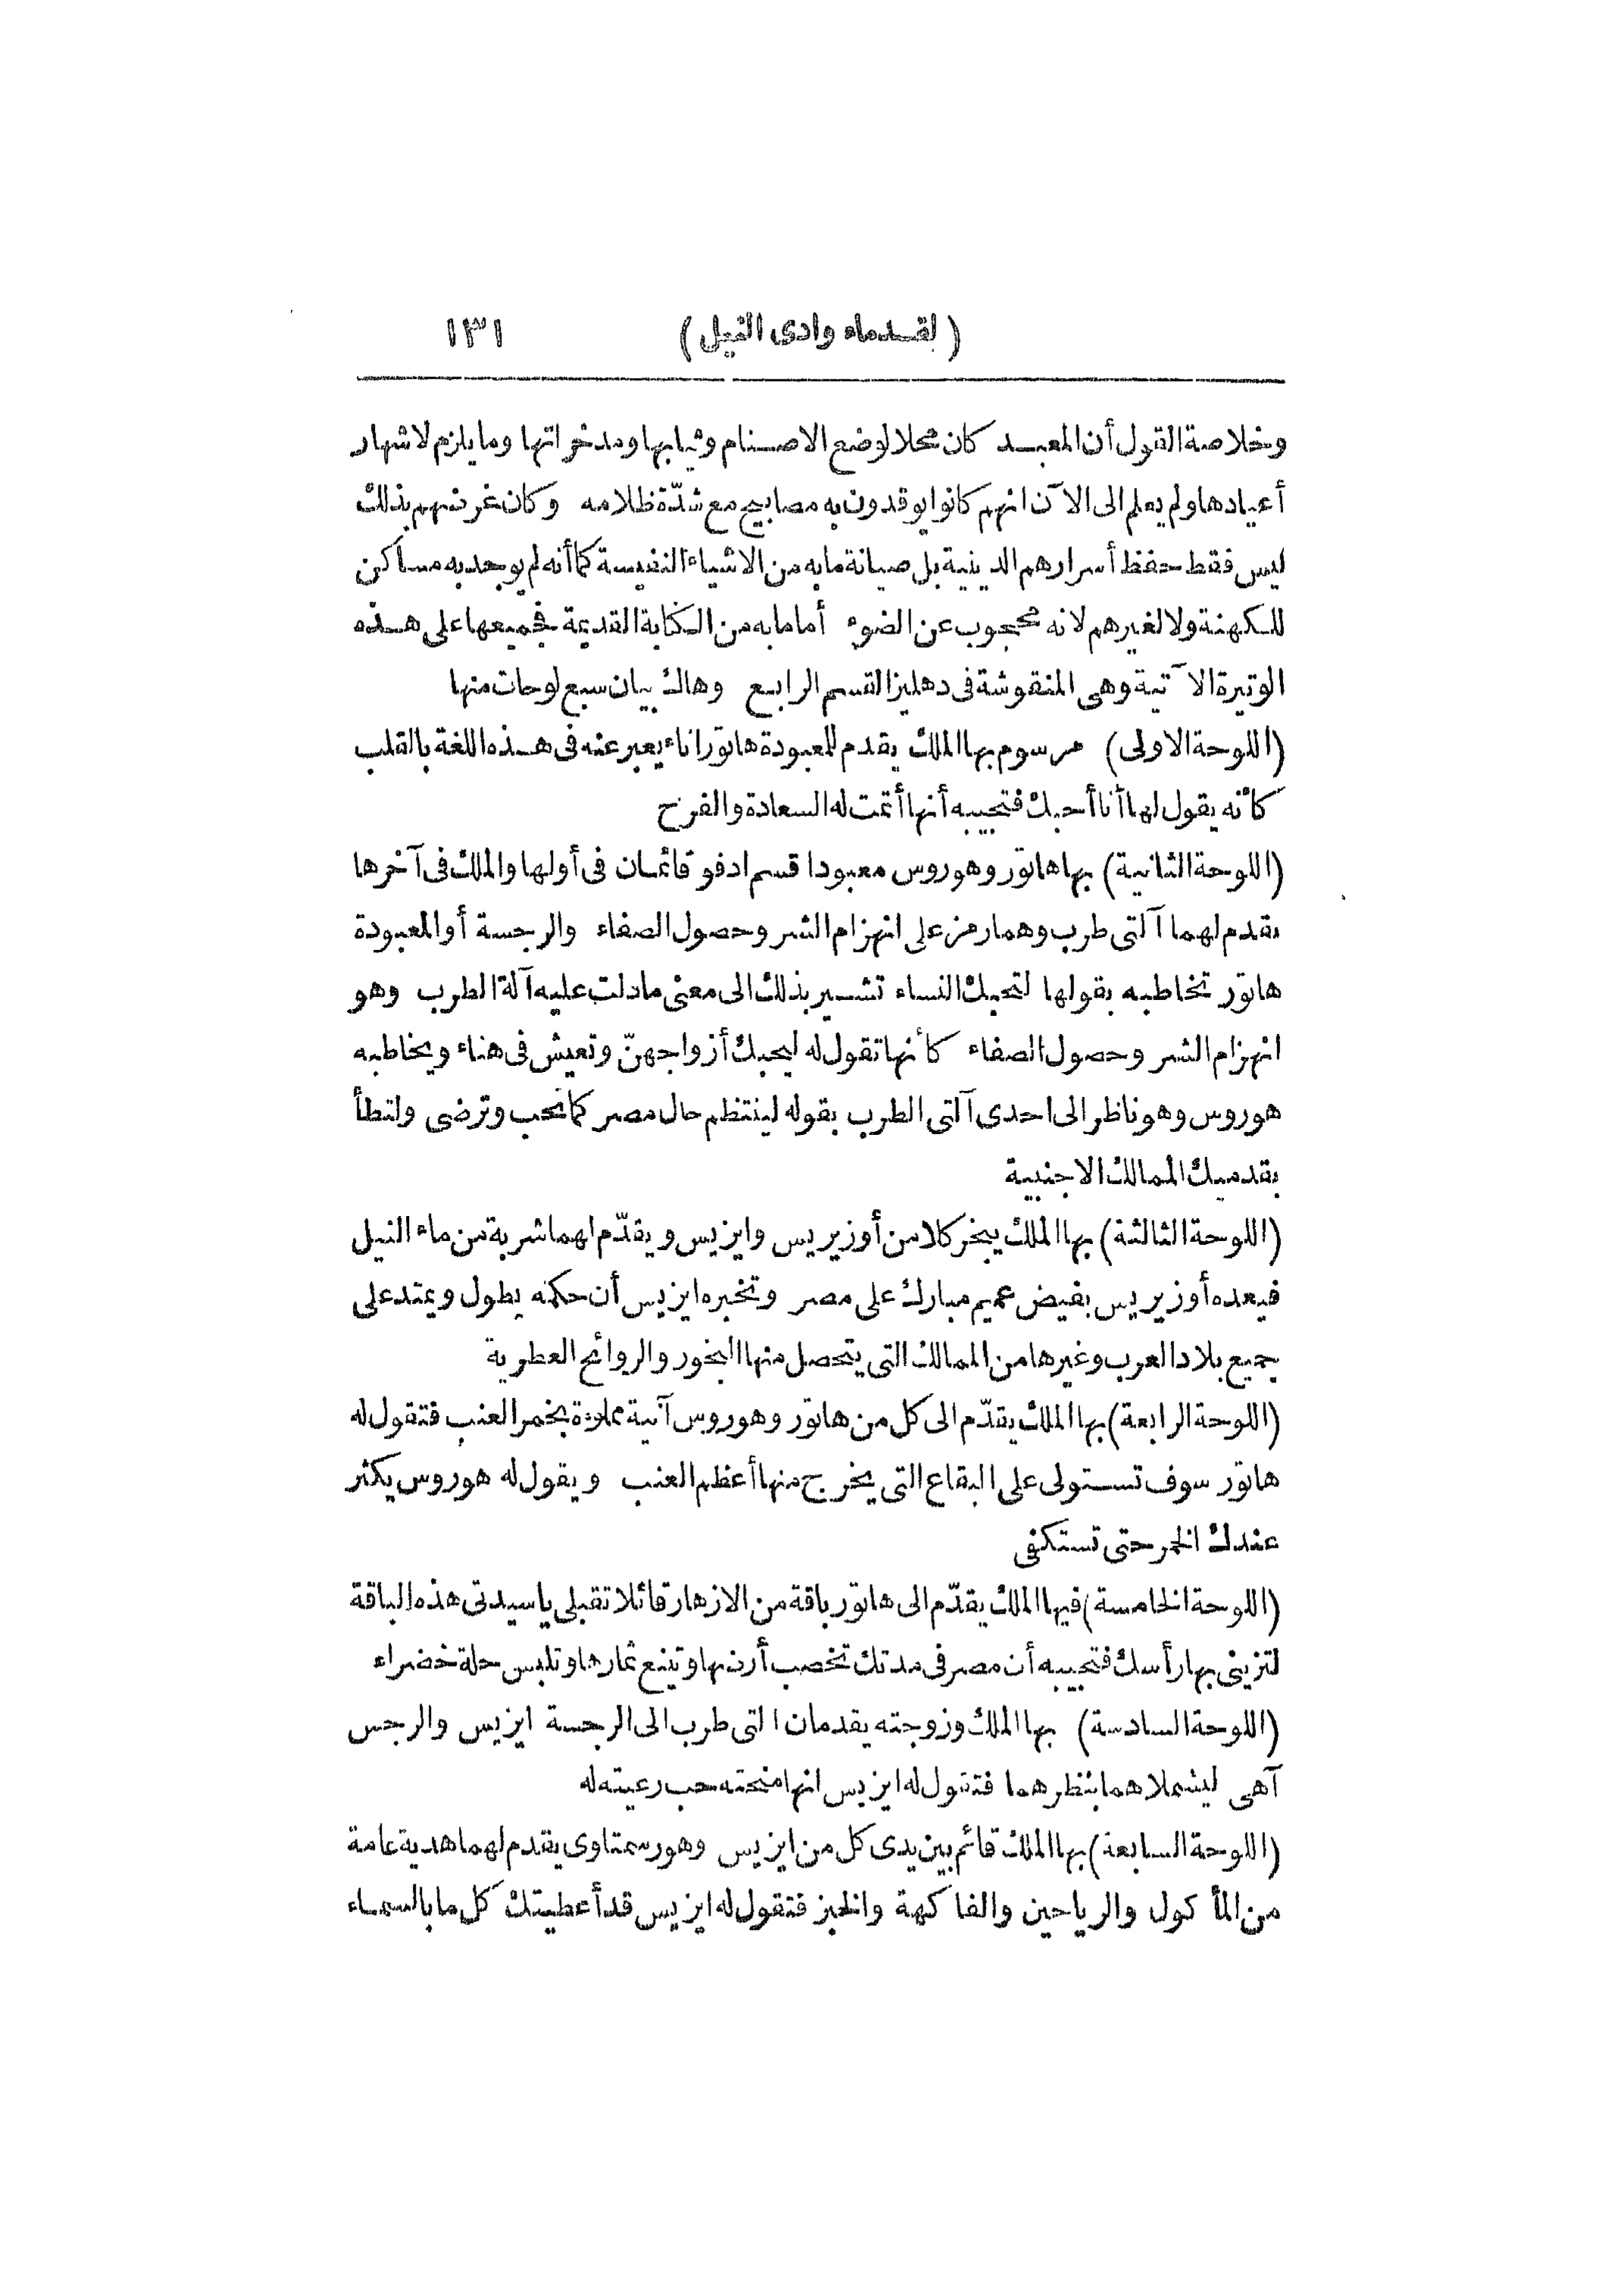 (لقدماء وادى النيل) ١٣١
وخلاصة القول أن المعبد كان محلا لوضع الاصنام وثيابها ومدخراتها وما يلزم لاشهار
أعيادها ولم يعلم الى الآن انهم كانوا يوقدون به مصابيح مع شدّة ظلامه وكان غرضهم بذلك
ليس فقط حفظ أسرارهم الدينية بل صيانة ما به من الاشياء النفيسة كما أنه لم يوجد به مساكن
للكهنة ولا لغيرهم لانه محجوب عن الضوء أما ما به من الكتابة القديمة فجميعها على هذه
الوتيرة الآتية وهى المنقوشة فى دهليز القسم الرابع وهاك بيان سبع لوحات منها
(اللوحة الاولى) مرسوم بها الملك يقدم للعبودة هاتور اناء يعبر عنه فى هذه اللغة بالقلب
كأنه يقول لها أنا أحبك فتجيبه أنها أتمت له السعادة والفرح
(اللوحة الثانية) بها هاتور وهوروس معبودا قسم ادفو قائمان فى أولها والملك فى آخرها
يقدم لهما آلتى طرب وهما رمز على انهزام الشر وحصول الصفاء والرجسة أو المعبودة
هاتور تخاطبه بقولها لتحبك النساء تشير بذلك الى معنى ما دلت عليه آلة الطرب وهو
انهزام الشر وحصول الصفاء كأنها تقول له ليحبك أزواجهنّ وتعيش فى هناء ويخاطبه
هوروس وهو ناظر الى احدى آلتى الطرب بقوله لينتظم حال مصر كما تحب وترضى ولتطأ
بقدميك الممالك الاجنبية
(اللوحة الثالثة) بها الملك يبخر كلا من أوزيريس وايزيس ويقدّم لهما شربة من ماء النيل
فيعده أوزيريس بفيض عميم مبارك على مصر وتخبره ايزيس أن حكمه يطول ويمتد على
جميع بلاد العرب وغيرها من الممالك التى يتحصل منها البخور والروائح العطرية
(اللوحة الرابعة) بها الملك يقدّم الى كل من هاتور وهوروس آنية مملوءة بخمر العنب فتقول له
هاتور سوف تستولى على البقاع التى يخرج منها أعظم العنب ويقول له هوروس يكثر
عندك الخمر حتى تستكفى
(اللوحة الخامسة) فيها الملك يقدّم الى هاتور باقة من الازهار قائلا تقبلى يا سيدتى هذه الباقة
لتزينى بها رأسك فتجيبه أن مصر فى مدتك تخصب أرضها وتينع ثمارها وتلبس حلة خضراء
(اللوحة السادسة) بها الملك وزوجته يقدمان التى طرب الى الرجسة ايزيس والرجس
آهى ليشملاهما بنظرهما فتقول له ايزيس انها منحته حب رعيته له
(اللوحة السابعة) بها الملك قائم بين يدى كل من ايزيس وهورسمتاوى يقدم لهما هدية عامة
من المأكول والرياحين والفاكهة والخبز فتقول له ايزيس قد أعطيتك كل ما بالسماء